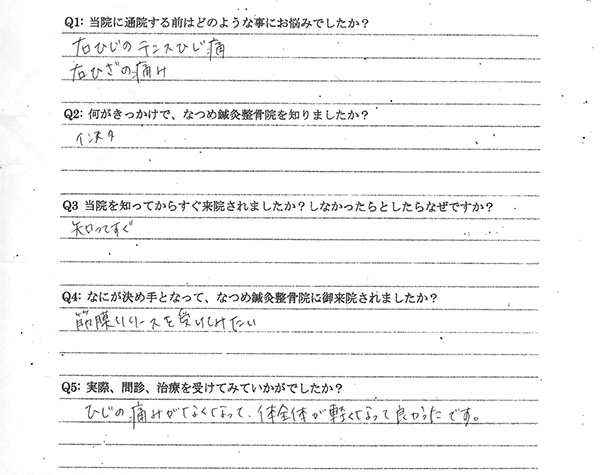 Q1: 当院に通院する前はどのような事にお悩みでしたか？
右ひじのテニスひじ痛
右ひざの痛み
Q2: 何がきっかけで、なつめ鍼灸整骨院を知りましたか？
インスタ
Q3 当院を知ってからすぐ来院されましたか？しなかったらとしたらなぜですか？
知ってすぐ
Q4: なにが決め手となって、なつめ鍼灸整骨院に御来院されましたか？
筋膜リリースを受けてみたい
Q5: 実際、問診、治療を受けてみていかがでしたか？
ひじの痛みがなくなって、体全体が軽くなって良かったです。